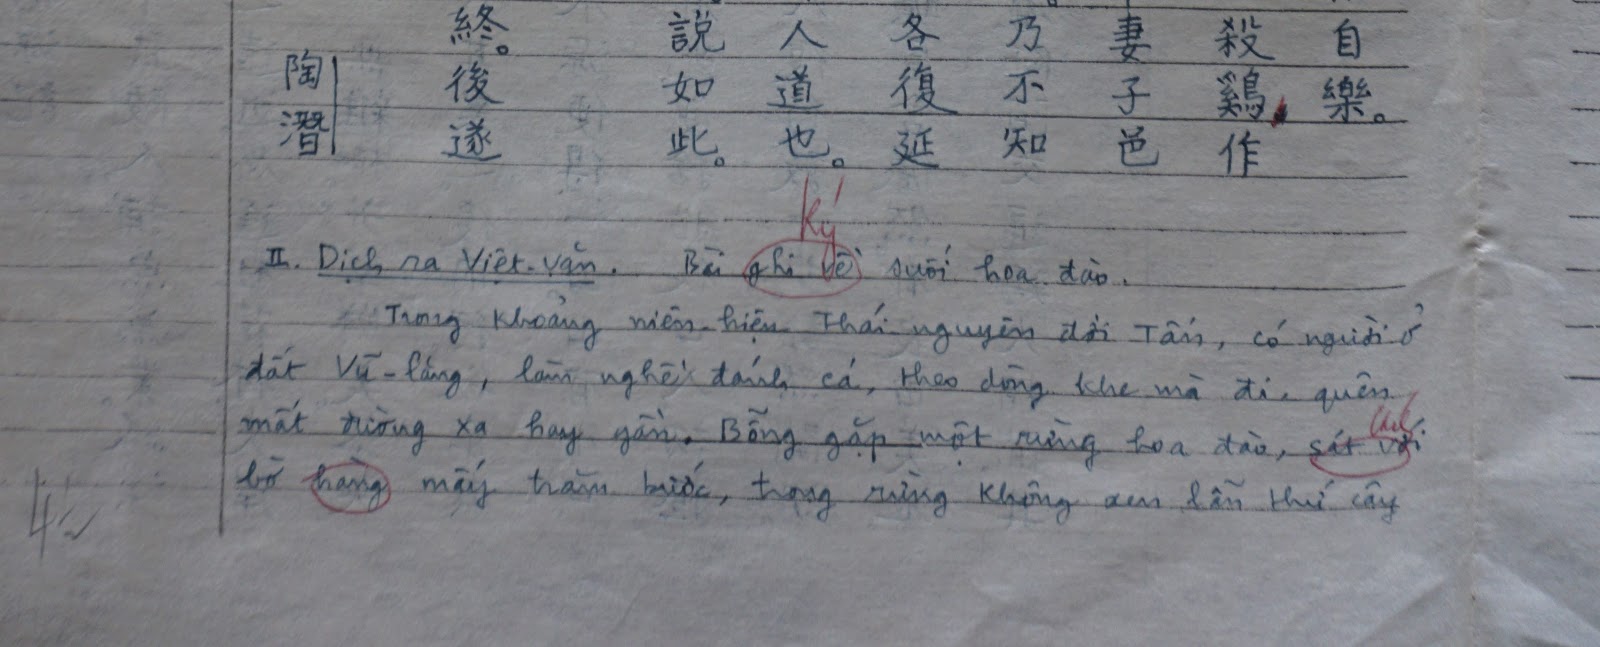 自樂。
殺鷄,作
妻子邑
乃不知
各復延
人道也。
説如此。
終。後遂
陶潛
Ký
II. Dịch ra Việt-văn. Bài ghi về suối hoa đào.
Trong khoảng niên-hiệu Thái nguyên đời Tấn, có người ở
đất Vũ-lăng, làm nghề đánh cá, theo dòng khe mà đi, quên
mất đường xa hay gần. Bỗng gặp một rừng hoa đào, sát với
bờ hàng mấy trăm bước, trong rừng không xen lẫn thứ cây